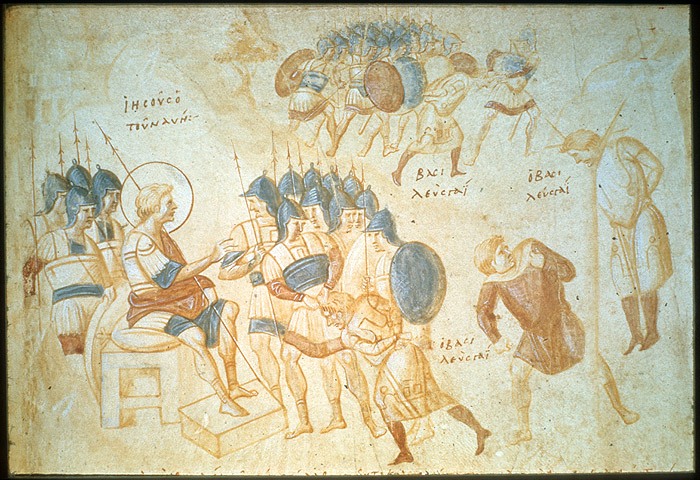 ἸΗΣΟῦΣ Ὁ
ΤΟῦ ΝΑΥΗ:-
ΒΑΣΙ
ΛΕῪΣ ΓΑΪ
Ὁ ΒΑΣΙ
ΛΕῪΣ ΓΑΪ
Ὁ ΒΑΣΙ
ΛΕῪΣ ΓΑΪ